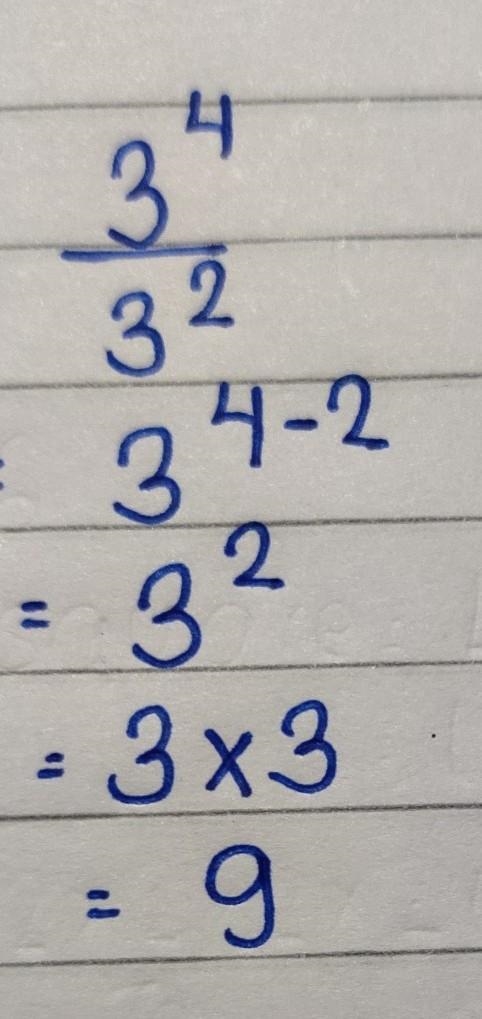 3⁴
3²
= 3⁴⁻²
= 3²
= 3×3
= 9